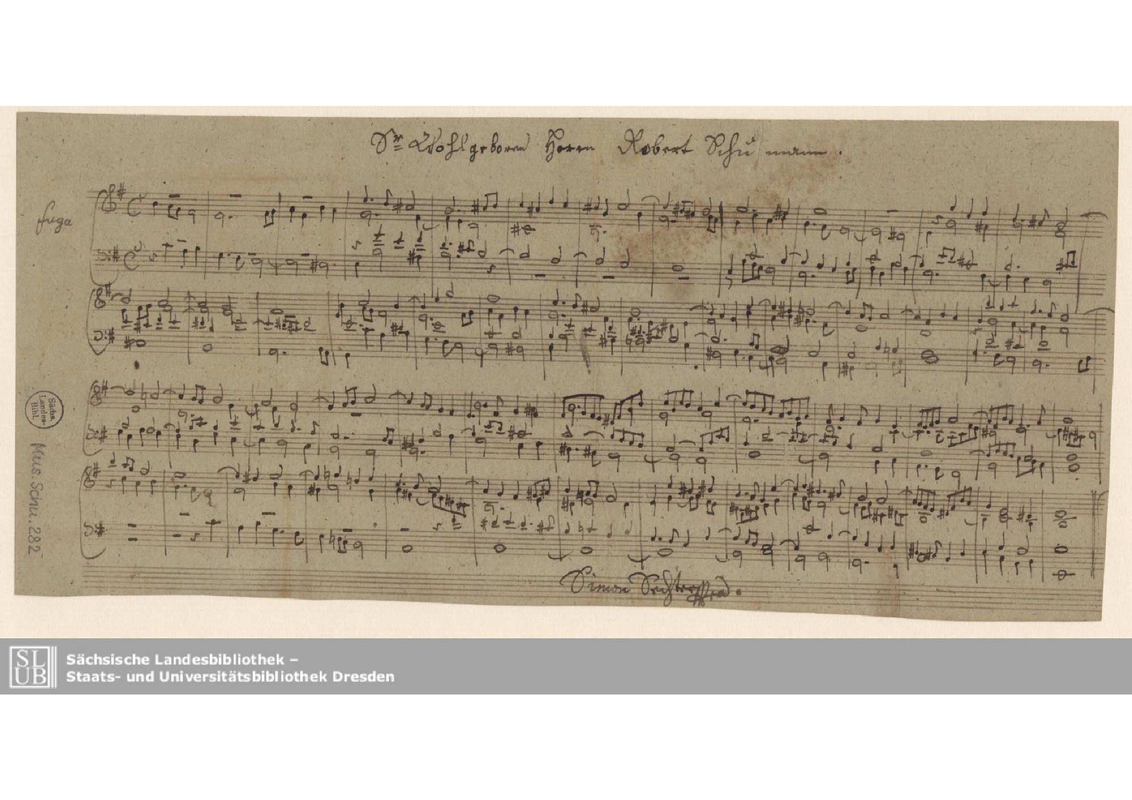 Sr Wohlgeboren Herrn Robert Schumann.
fuga
Sächs.
Landes-
Bibl.
Mus.Schu.282
Simon Sechter
SLUB
Sächsische Landesbibliothek –
Staats- und Universitätsbibliothek Dresden